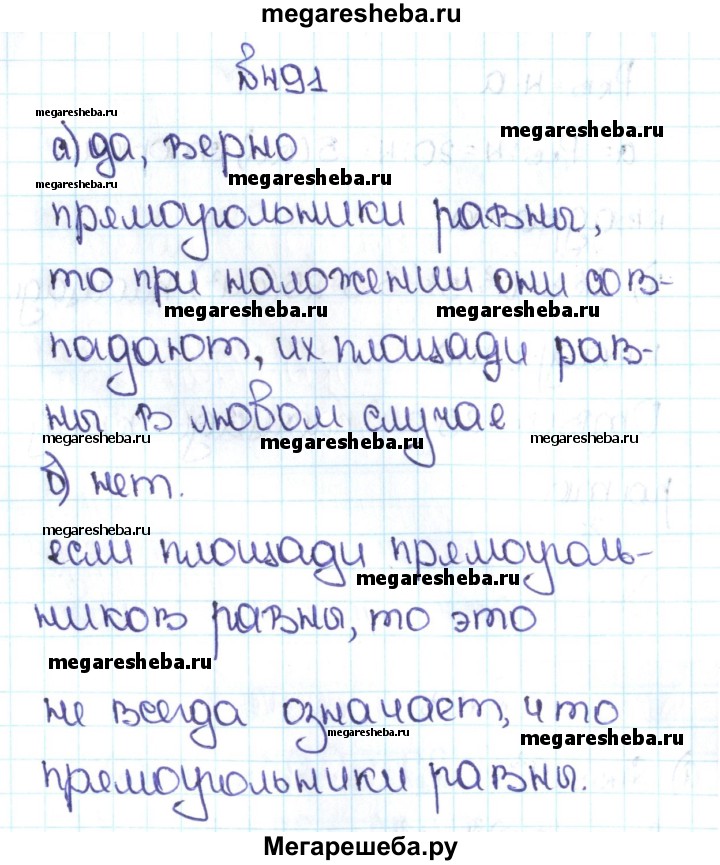 megaresheba.ru
№491
megaresheba.ru
megaresheba.ru
а) да, верно
megaresheba.ru
megaresheba.ru
прямоугольники равны,
то при наложении они сов-
megaresheba.ru
megaresheba.ru
падают, их площади рав-
ны в любом случае
megaresheba.ru
megaresheba.ru
megaresheba.ru
б) нет.
megaresheba.ru
если площади прямоуголь-
megaresheba.ru
ников равны, то это
megaresheba.ru
не всегда означает, что
megaresheba.ru
megaresheba.ru
прямоугольники равны.
Мегарешеба.ру